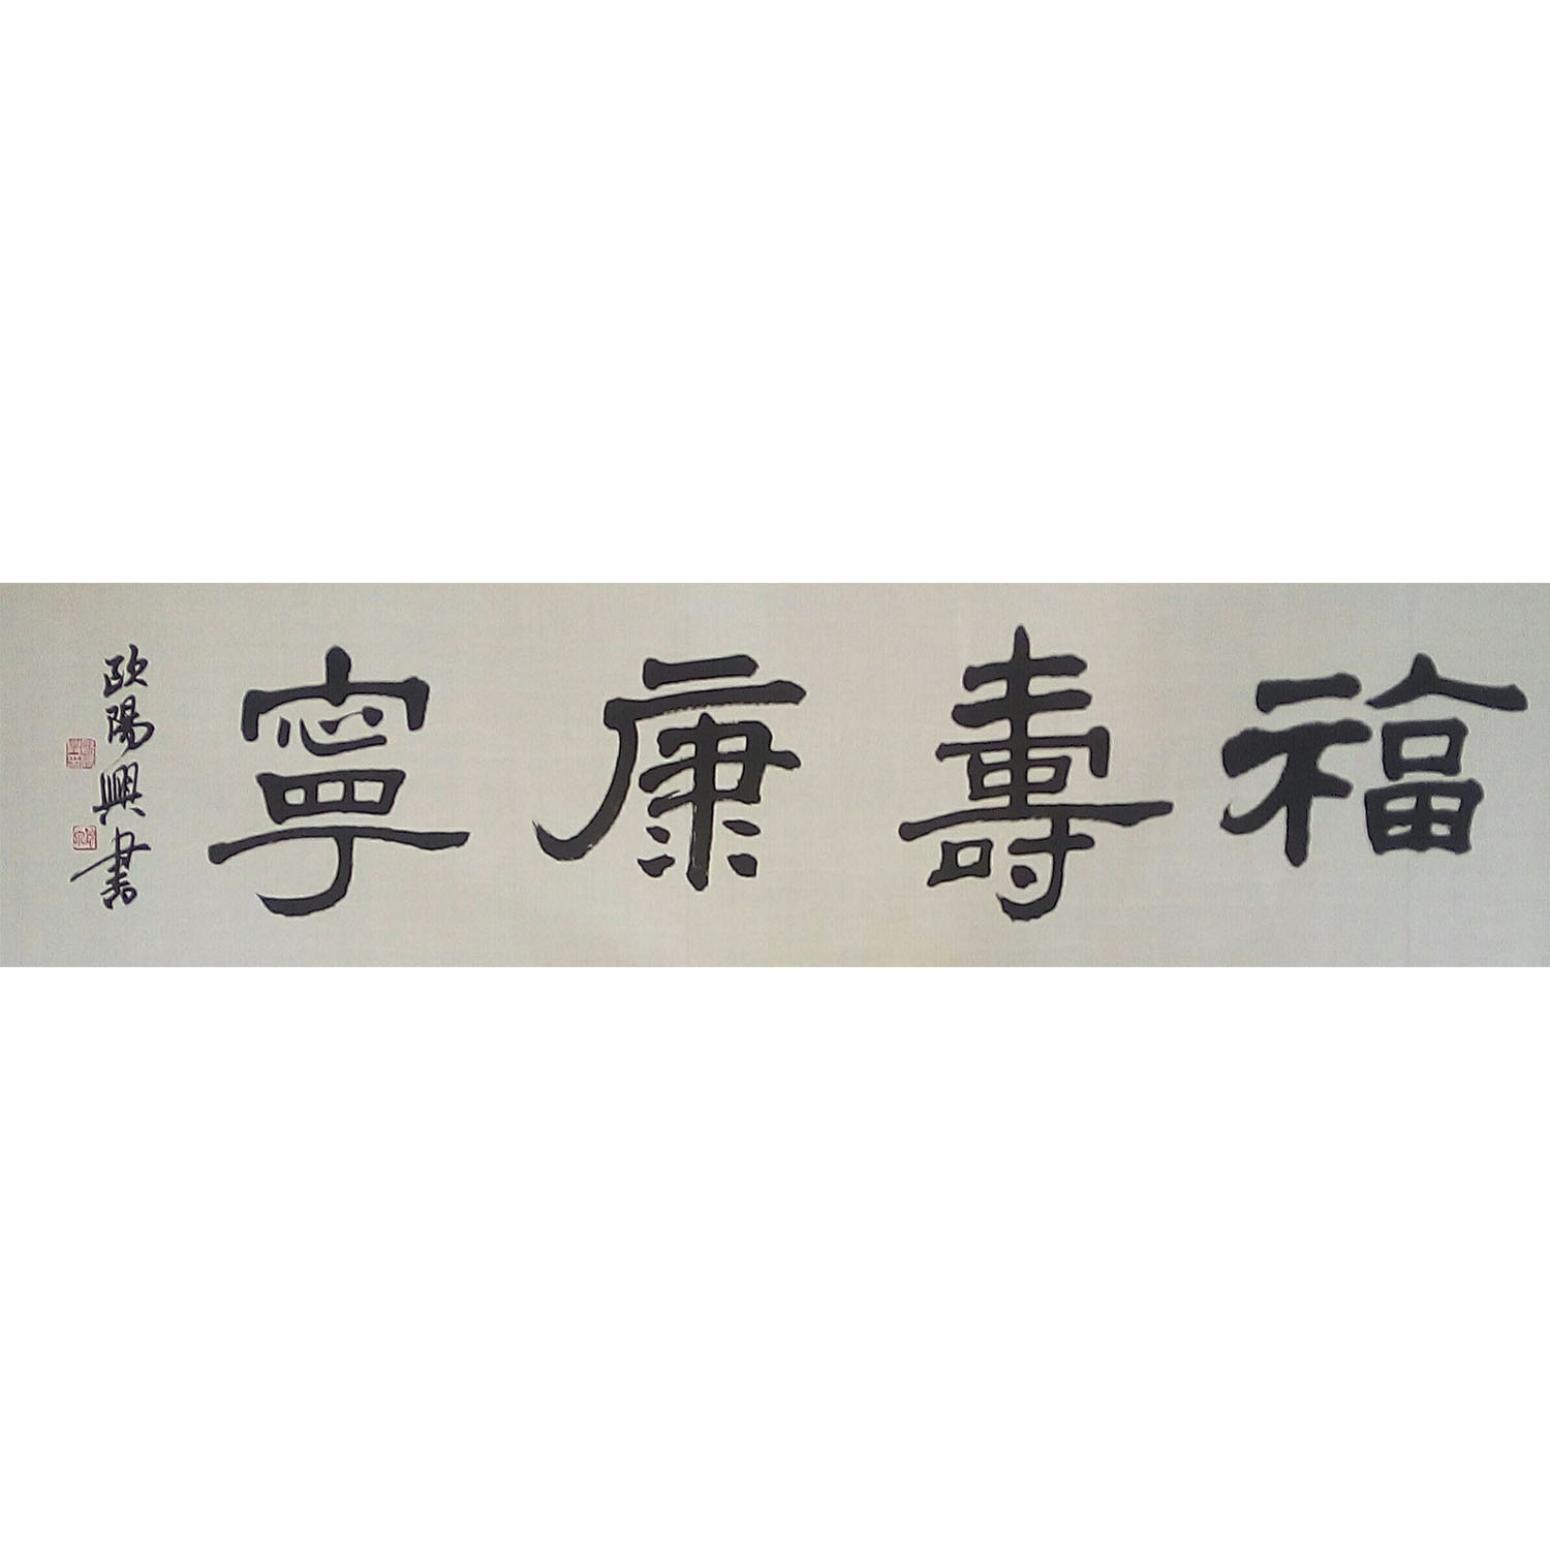 福壽康寧
歐陽興書